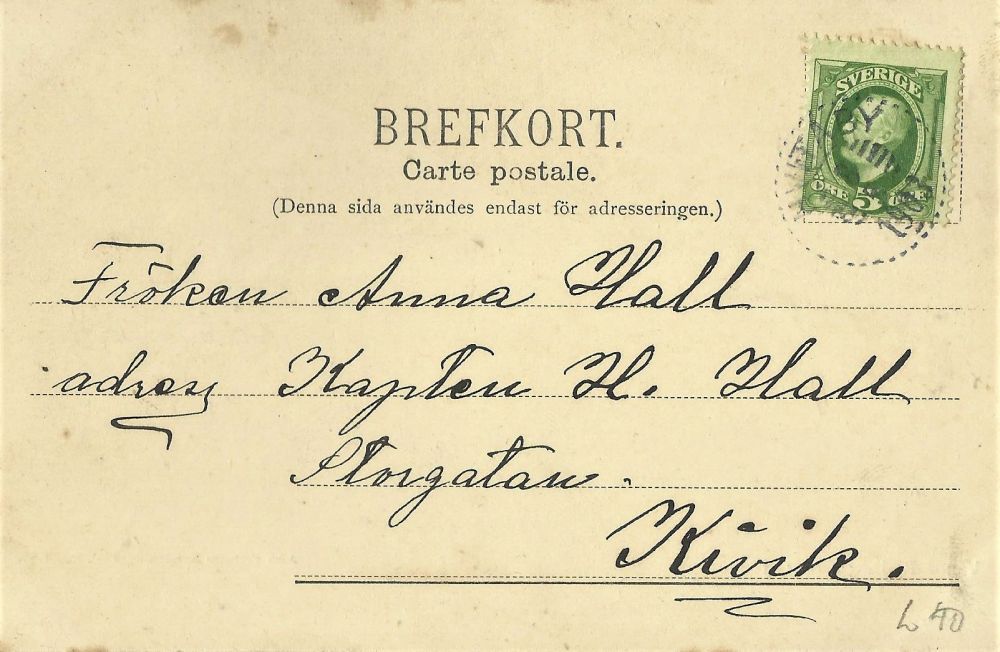 SVERIGE
BREFKORT.
Carte postale.
ÖRE 5 ÖRE
(Denna sida användes endast för adresseringen.)
Fröken Anna Hall
adress Kapten H. Hall
Storgatan.
Kivik.